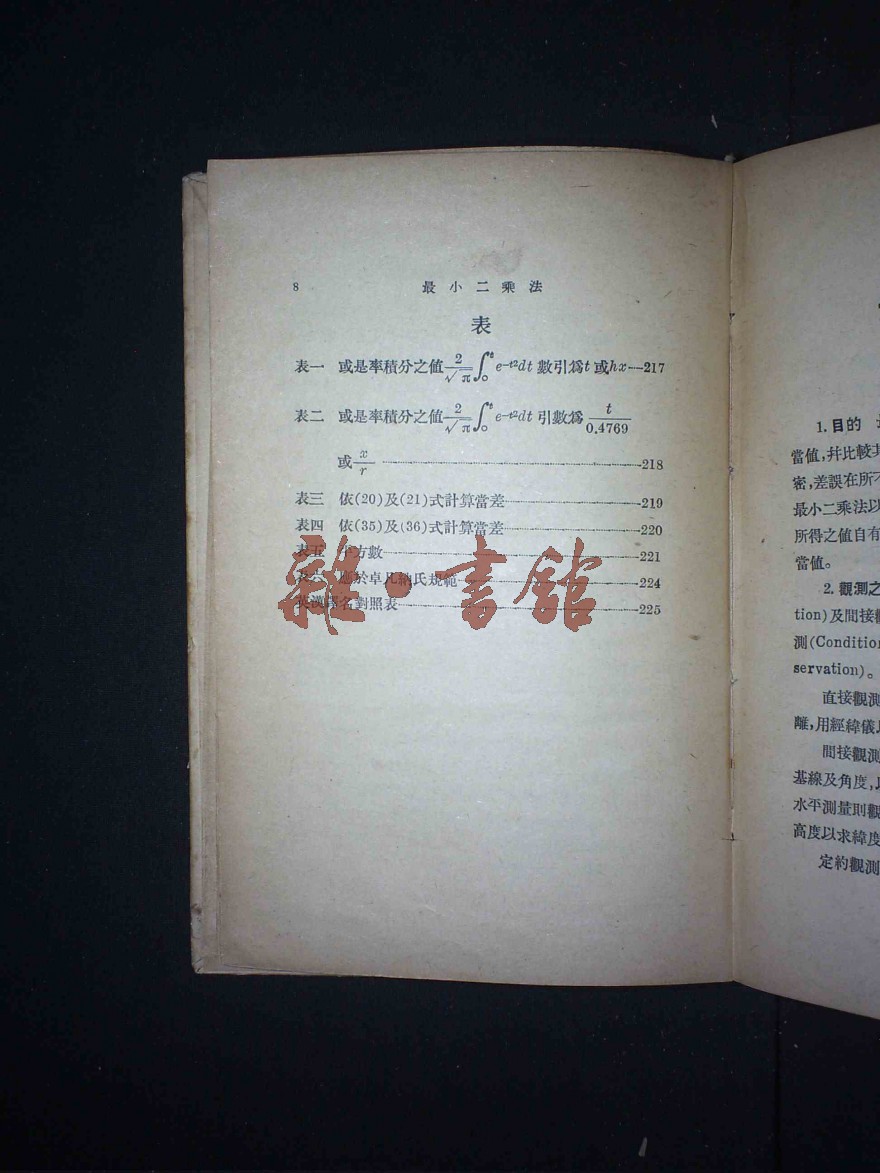 8 最小二乘法
表
表一 或是率積分之値 2/√π ∫₀ᵗ e⁻ᵗ²dt 數引爲t或hx 217
表二 或是率積分之値 2/√π ∫₀ᵗ e⁻ᵗ²dt 引數爲 t/0.4769
或 x/r 218
表三 依(20)及(21)式計算當差 219
表四 依(35)及(36)式計算當差 220
表五 平方數 221
表六 應於卓凡納氏規範 224
英漢譯名對照表 225
雜·書館
1.目的
當値,幷比較其
密,差誤在所不
最小二乘法以
所得之値自有
當値。
2.觀測之
tion)及間接觀
測(Conditio
servation)。
直接觀測
離,用經緯儀
間接觀測
基線及角度,
水平測量則觀
高度以求緯度
定約觀測